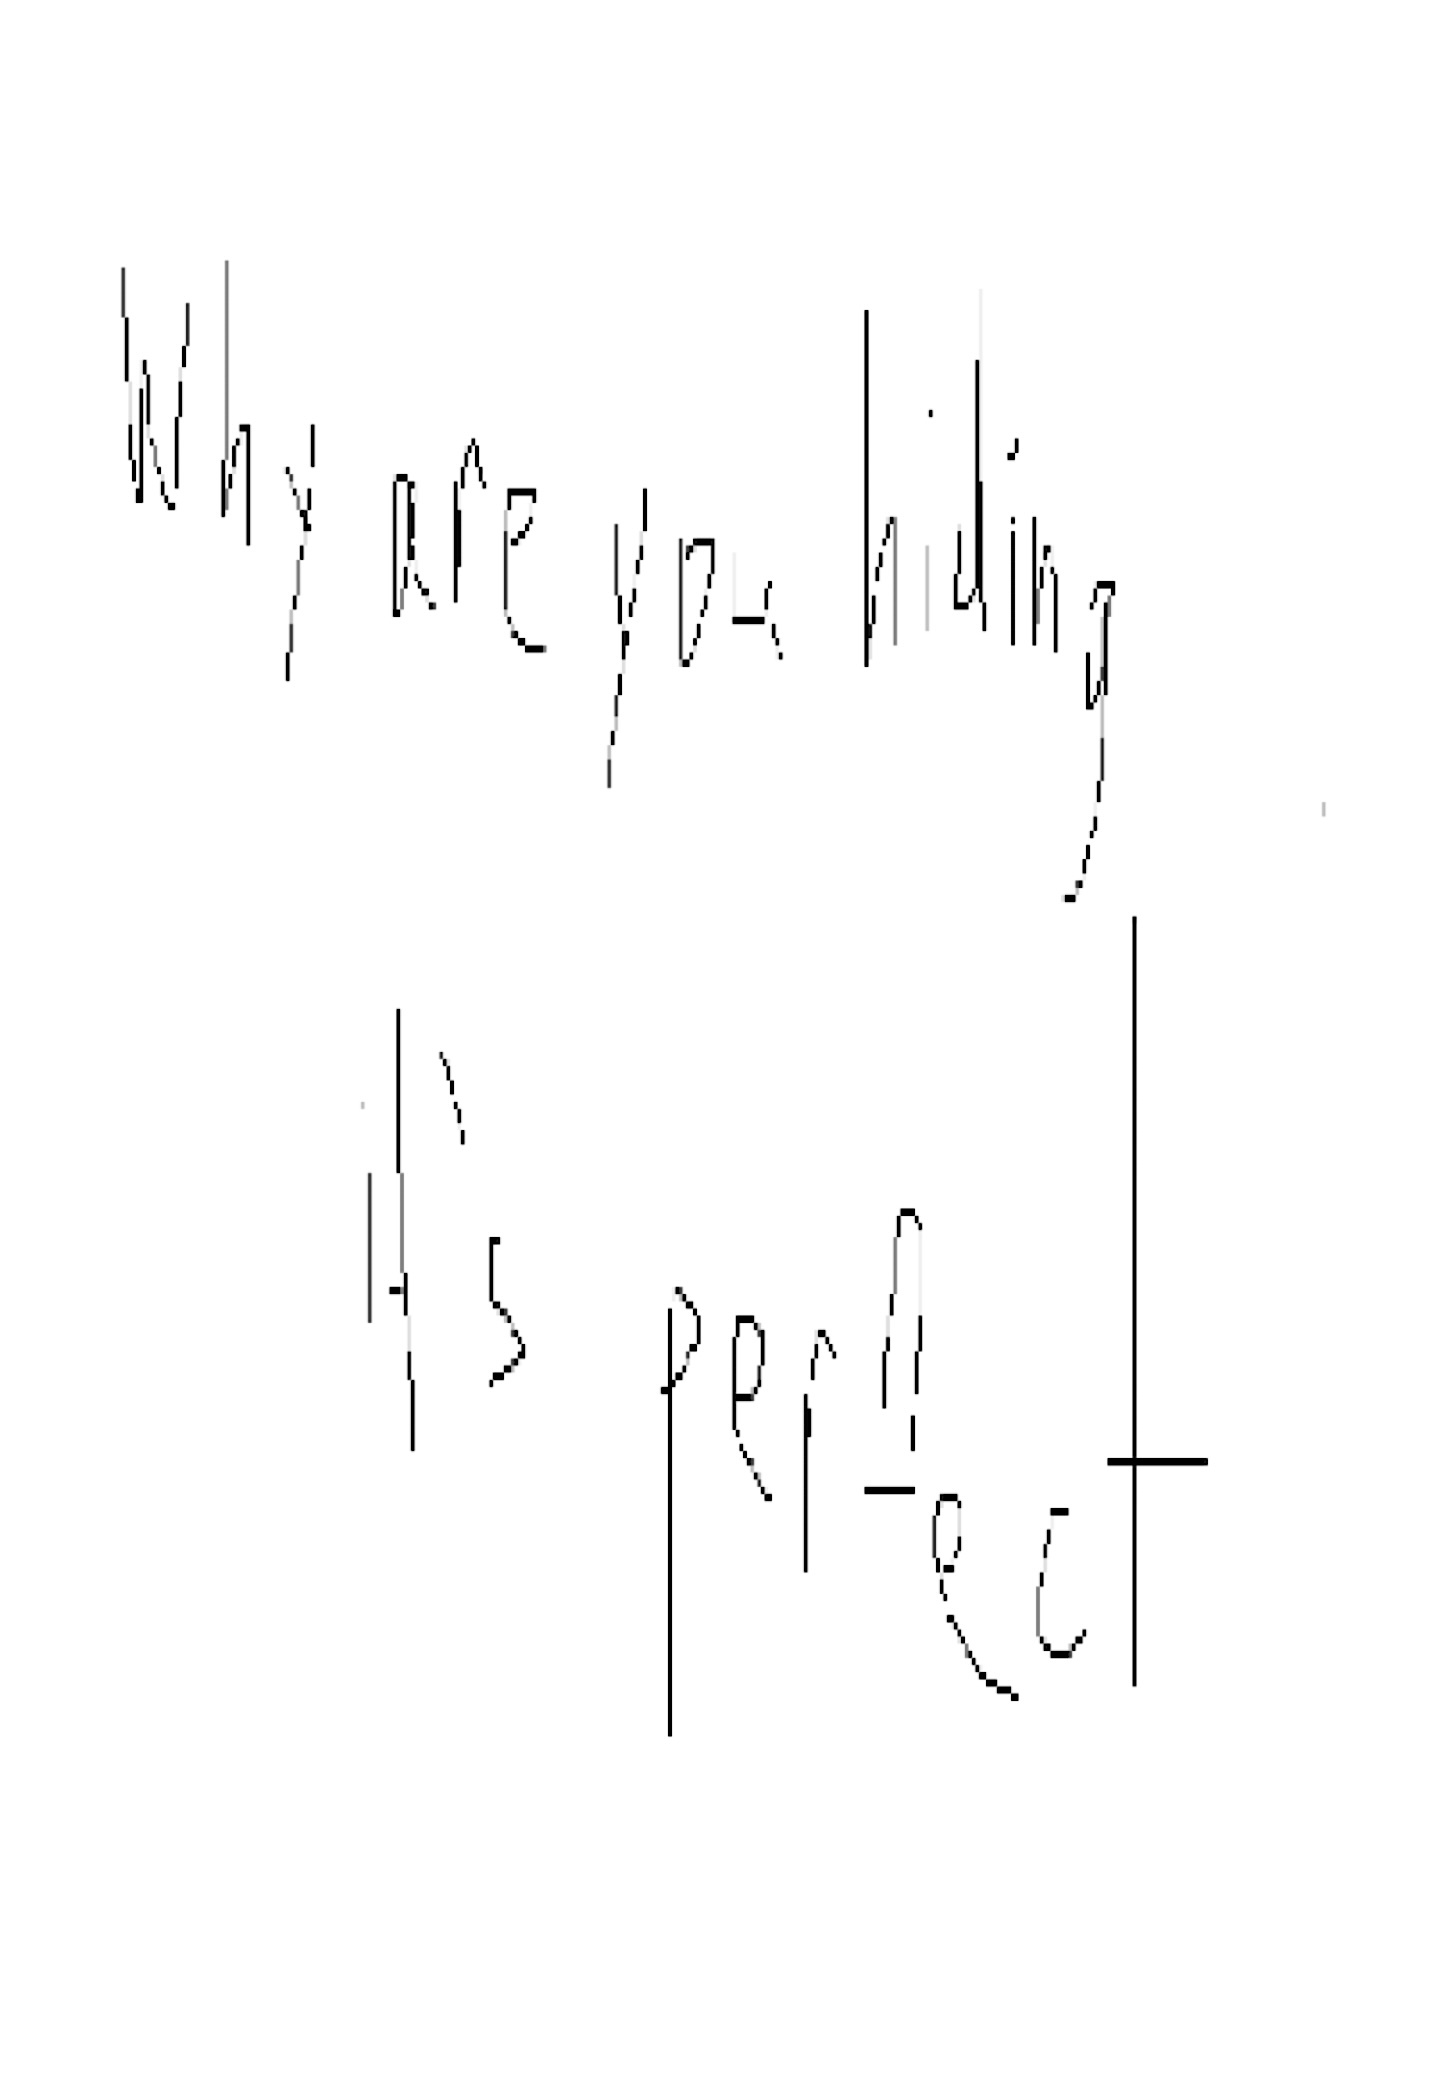 Why are you hiding
it's perfect